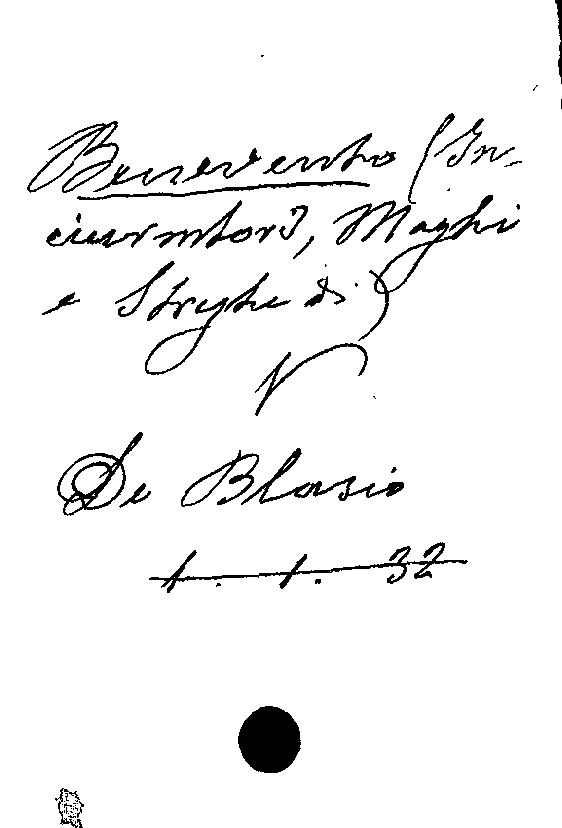 Benevento (In-
ciarmatori, Maghi
e Streghe di)
V
De Blasio
1. 1. 32